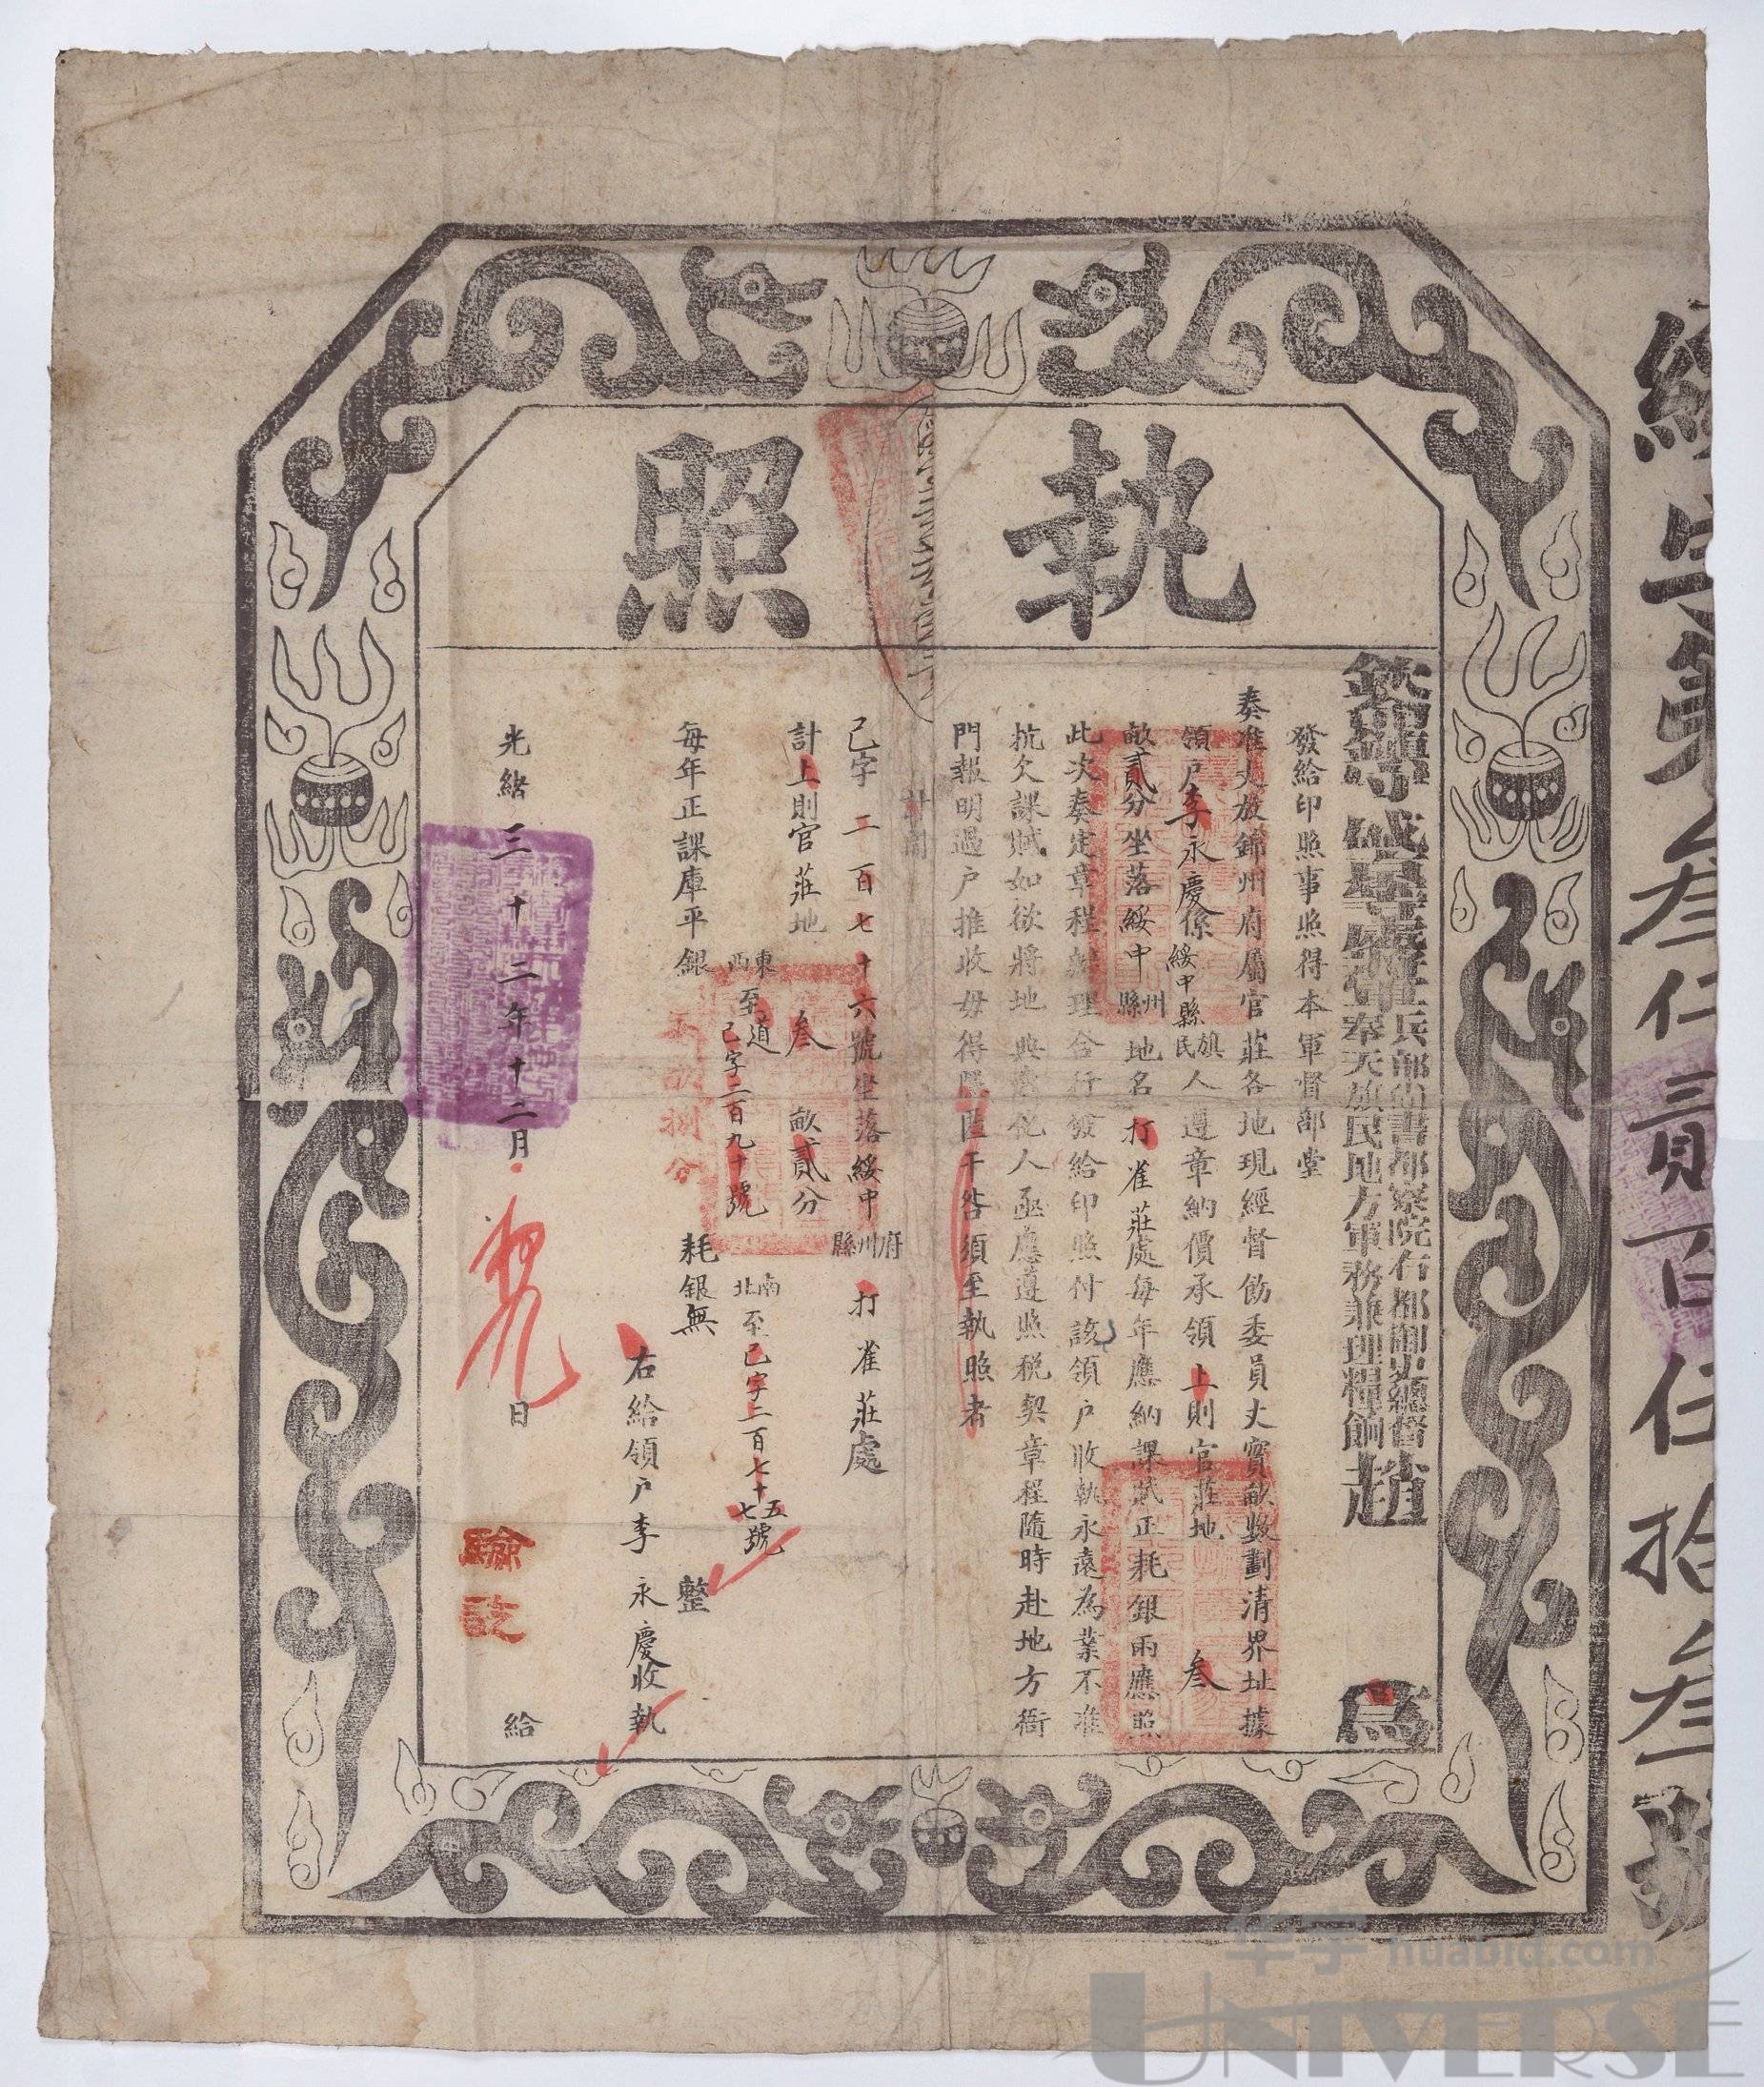 執照
欽命
兵部尚書都察院右都御史總督
奉天旗民地方軍務兼理糧餉
趙
爲
發給印照事照得本軍督部堂
奏准丈放錦州府屬官莊各地現經督飭委員丈實畝數劃清界址據
領戶李永慶係綏中縣旗民人遵章納價承領上則官莊地叁
畝貳分坐落綏中州縣地名打雀莊處每年應納課賦正耗銀兩應照
此次奏定章程辦理合行發給印照付該領戶收執永遠為業不准
抗欠課賦如欲將地典賣他人亟應遵照稅契章程隨時赴地方衙
門報明過戶推收毋得隱匿干咎須至執照者
計開
己字二百七十六號坐落綏中府州縣打雀莊處
計上則官莊地叁畝貳分
東西至道己字二百九十號南北至己字二百七十五七號
每年正課庫平銀 捌分耗銀無整
右給領戶李永慶收執
光緒三十二年十二月 日給
驗訖
字第叁仟貳百伍拾叁號
华宇 huabid.com
UNIVERSE